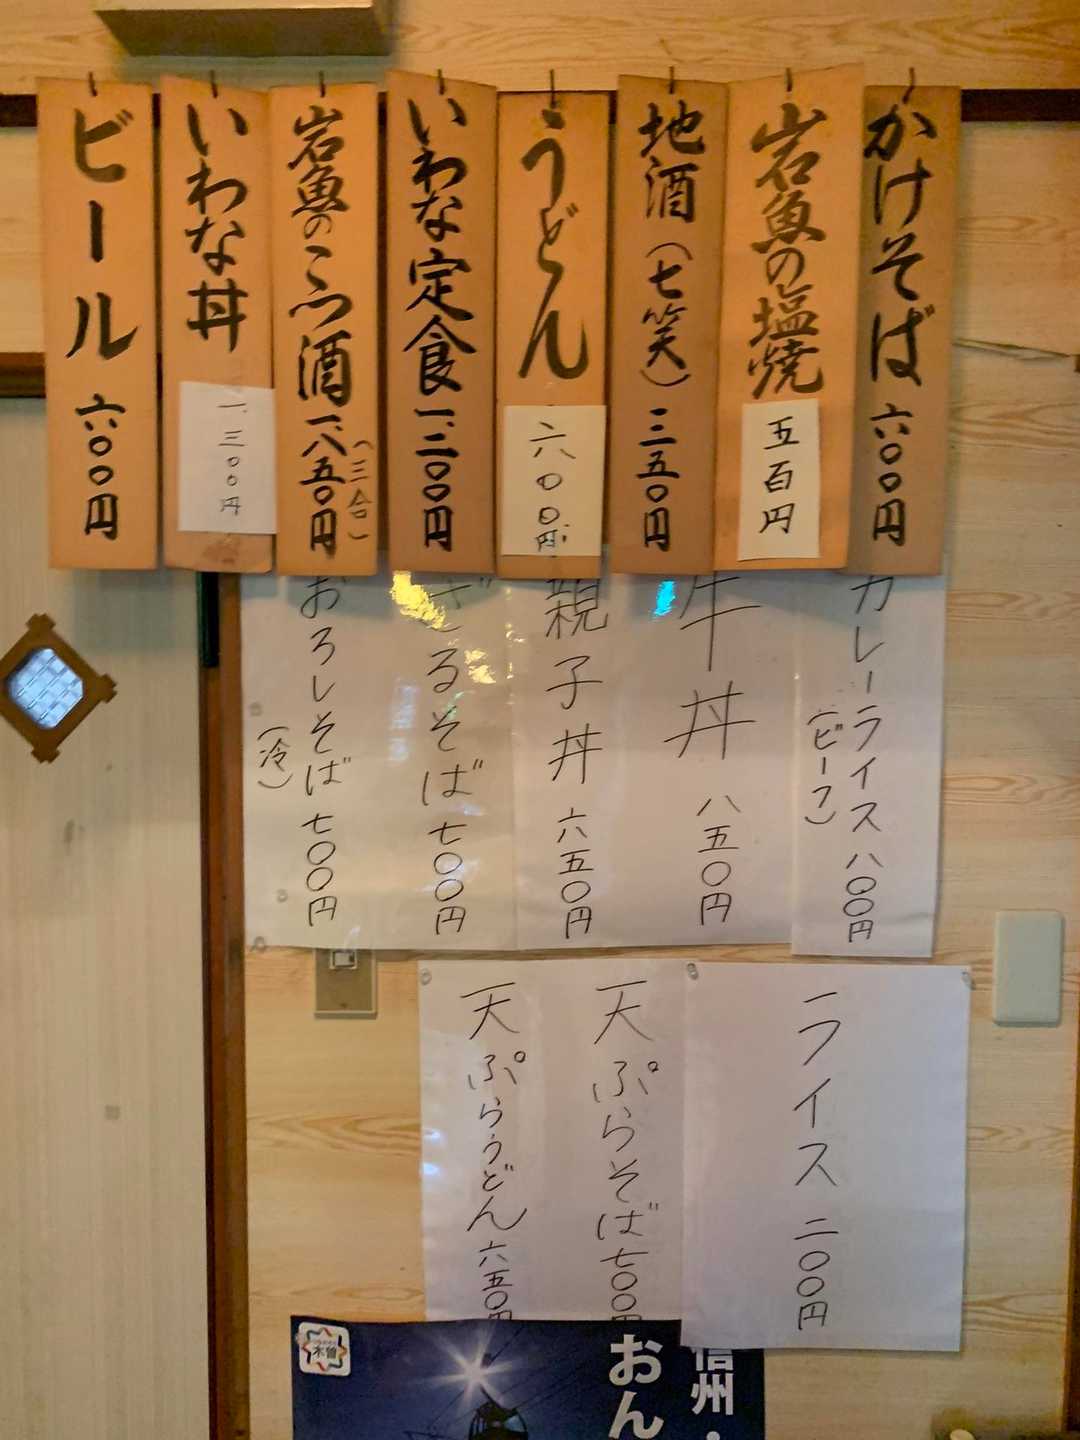 かけそば 六〇〇円
岩魚の塩焼 五百円
地酒（七笑）三五〇円
うどん 六〇〇円
いわな定食 一、二〇〇円
岩魚のこつ酒 一、八五〇円
（三合）
いわな丼 一、三〇〇円
ビール 六〇〇円
カレーライス 八〇〇円
（ビーフ）
牛丼 八五〇円
親子丼 六五〇円
ざるそば 七〇〇円
おろしそば 七〇〇円
（冷）
ライス 二〇〇円
天ぷらそば 七〇〇円
天ぷらうどん 六五〇円
木曽
信州・
おん